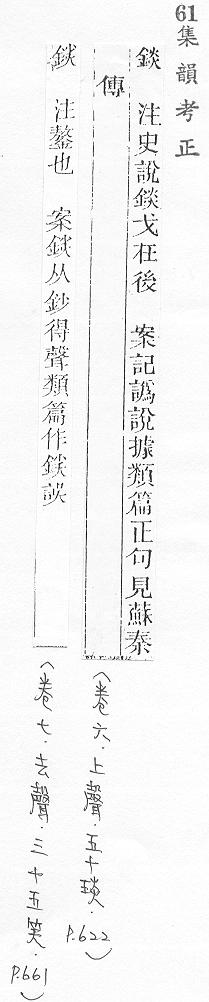 61集韻考正
錟　注史說錟戈在後　案記譌說據類篇正句見蘇秦
傳
(卷六．上聲．五十琰．P.622)
錟　注鏊也　案錟从鈔得聲類篇作錟誤
(卷七．去聲．三十五笑．P.661)